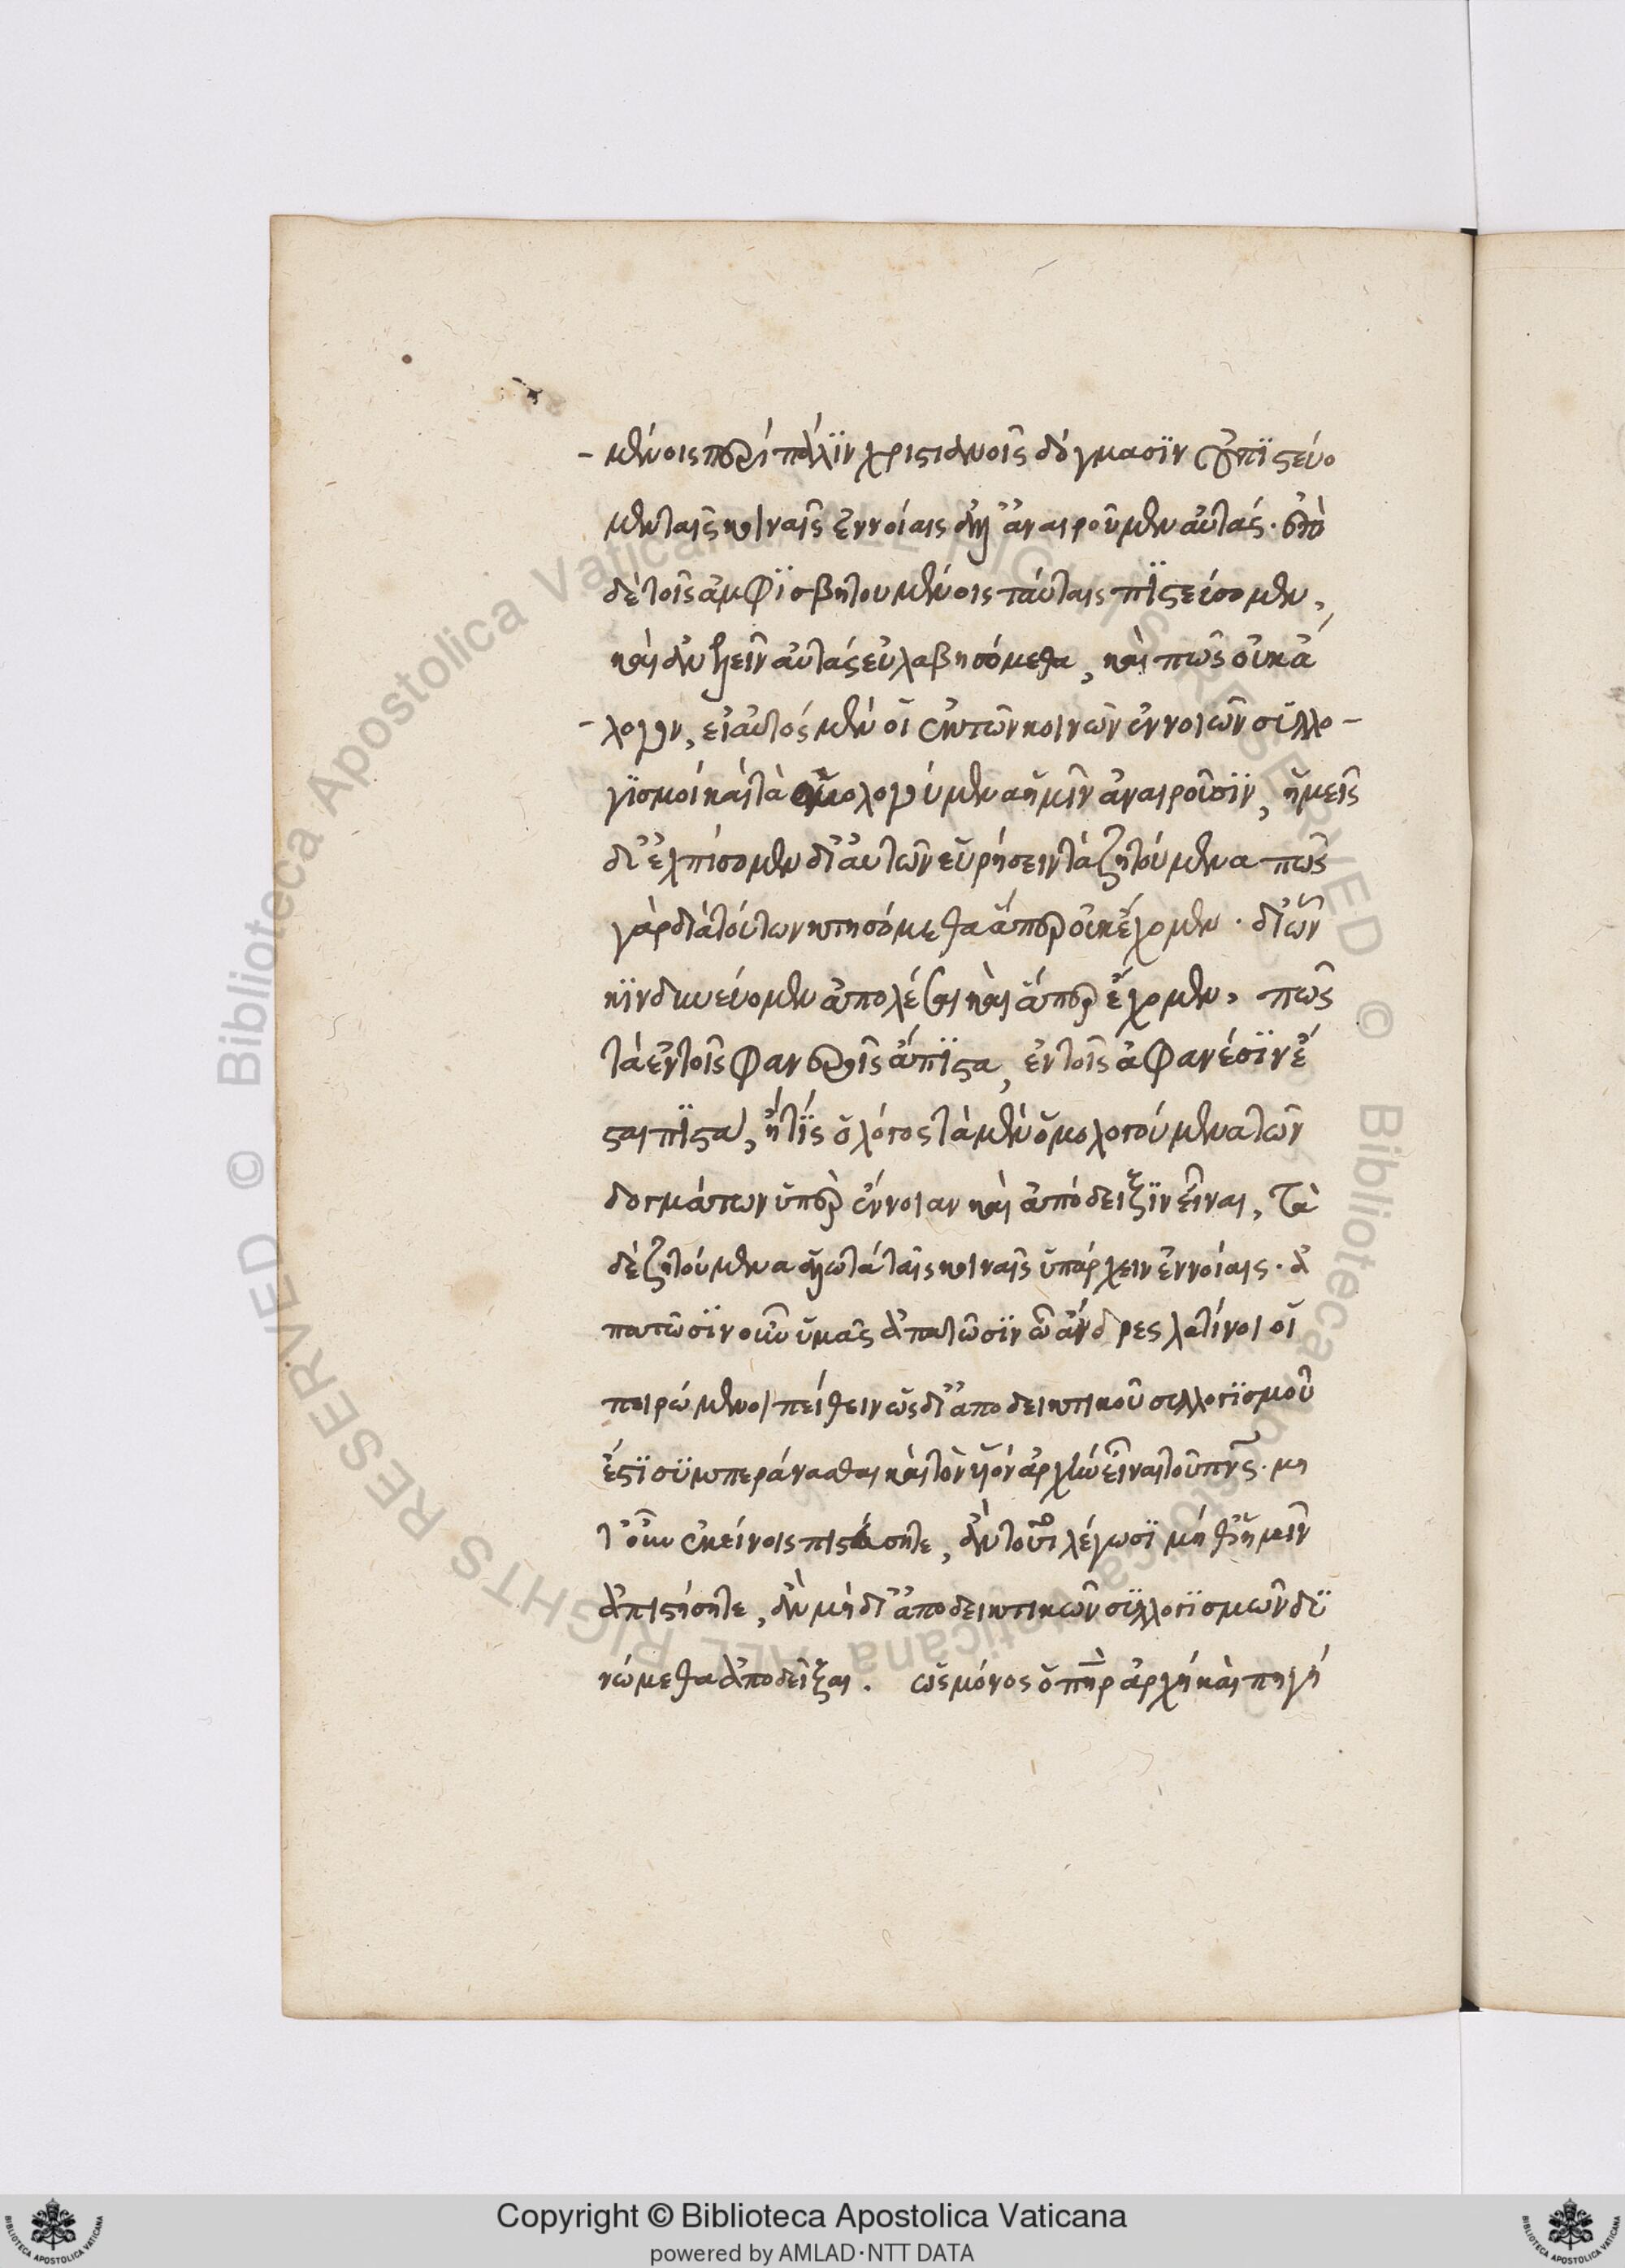 - μένοις περὶ πάλιν χριστιανοῖς δόγμασϊν οὐ πϊστεύο
μεν ταῖς κοιναῖς ἐννοίαις ἀλλ' ἀναιροῦμεν αὐτάς· ἐπὶ
δὲ τοῖς ἀμφϊσβητουμένοις ταύταις πϊστεύσομεν,
καὶ ἀνελεῖν αὐτάς εὐλαβησόμεθα, καὶ πῶς οὐκ ἄ
- λογον, εἰ αὐτός μὲν οἱ ἐκ τῶν κοινῶν ἐννοιῶν σϋλλο -
γϊσμοί καὶ τὰ ὁμολογούμενα ἡμῖν ἀναιροῦσϊν, ἡμεῖς
δ' ἐλπίσομεν δι' αὐτῶν εὑρήσειν τὰ ζητούμενα πῶς
γὰρ διὰ τούτων κτησόμεθα ἅπερ οὐκ ἔχομεν· δι' ὧν
κϊνδυνεύομεν ἀπολέσαι καὶ ἅπερ ἔχομεν, πῶς
τὰ ἐν τοῖς φανεροῖς ἄπϊστα, ἐν τοῖς ἀφανέσϊν ἔ
σται πϊστά, ἢ τίς ὁ λόγος τὰ μὲν ὁμολογούμενα τῶν
δογμάτων ὑπὲρ ἔννοιαν καὶ ἀπόδειξϊν εἶναι, τὰ
δὲ ζητούμενα ἁλωτά ταῖς κοιναῖς ὑπάρχειν ἐννοίαις· ἀ
πατῶσϊν οὖν ὑμᾶς ἀπατῶσϊν ὦ ἄνδρες λατίνοι οἱ
πειρώμενοι πείθειν ὡς δι' ἀποδεικτικοῦ συλλογϊσμοῦ
ἔστϊ σϋμπεράνασθαι καὶ τὸν υἱὸν ἀρχὴν εἶναι τοῦ πνς· μη
τ' οὖν ἐκείνοις πιστεύσητε, ἂν τοῦτο λέγωσϊ μήθ' ἡμῖν
ἀπιστήσητε, ἂν μὴ δι' ἀποδεικτικῶν σϋλλογϊσμῶν δϋ
νώμεθα ἀποδεῖξαι. ὡς μόνος ὁ πηρ ἀρχή καὶ πηγή
Copyright © Biblioteca Apostolica Vaticana
powered by AMLAD·NTT DATA